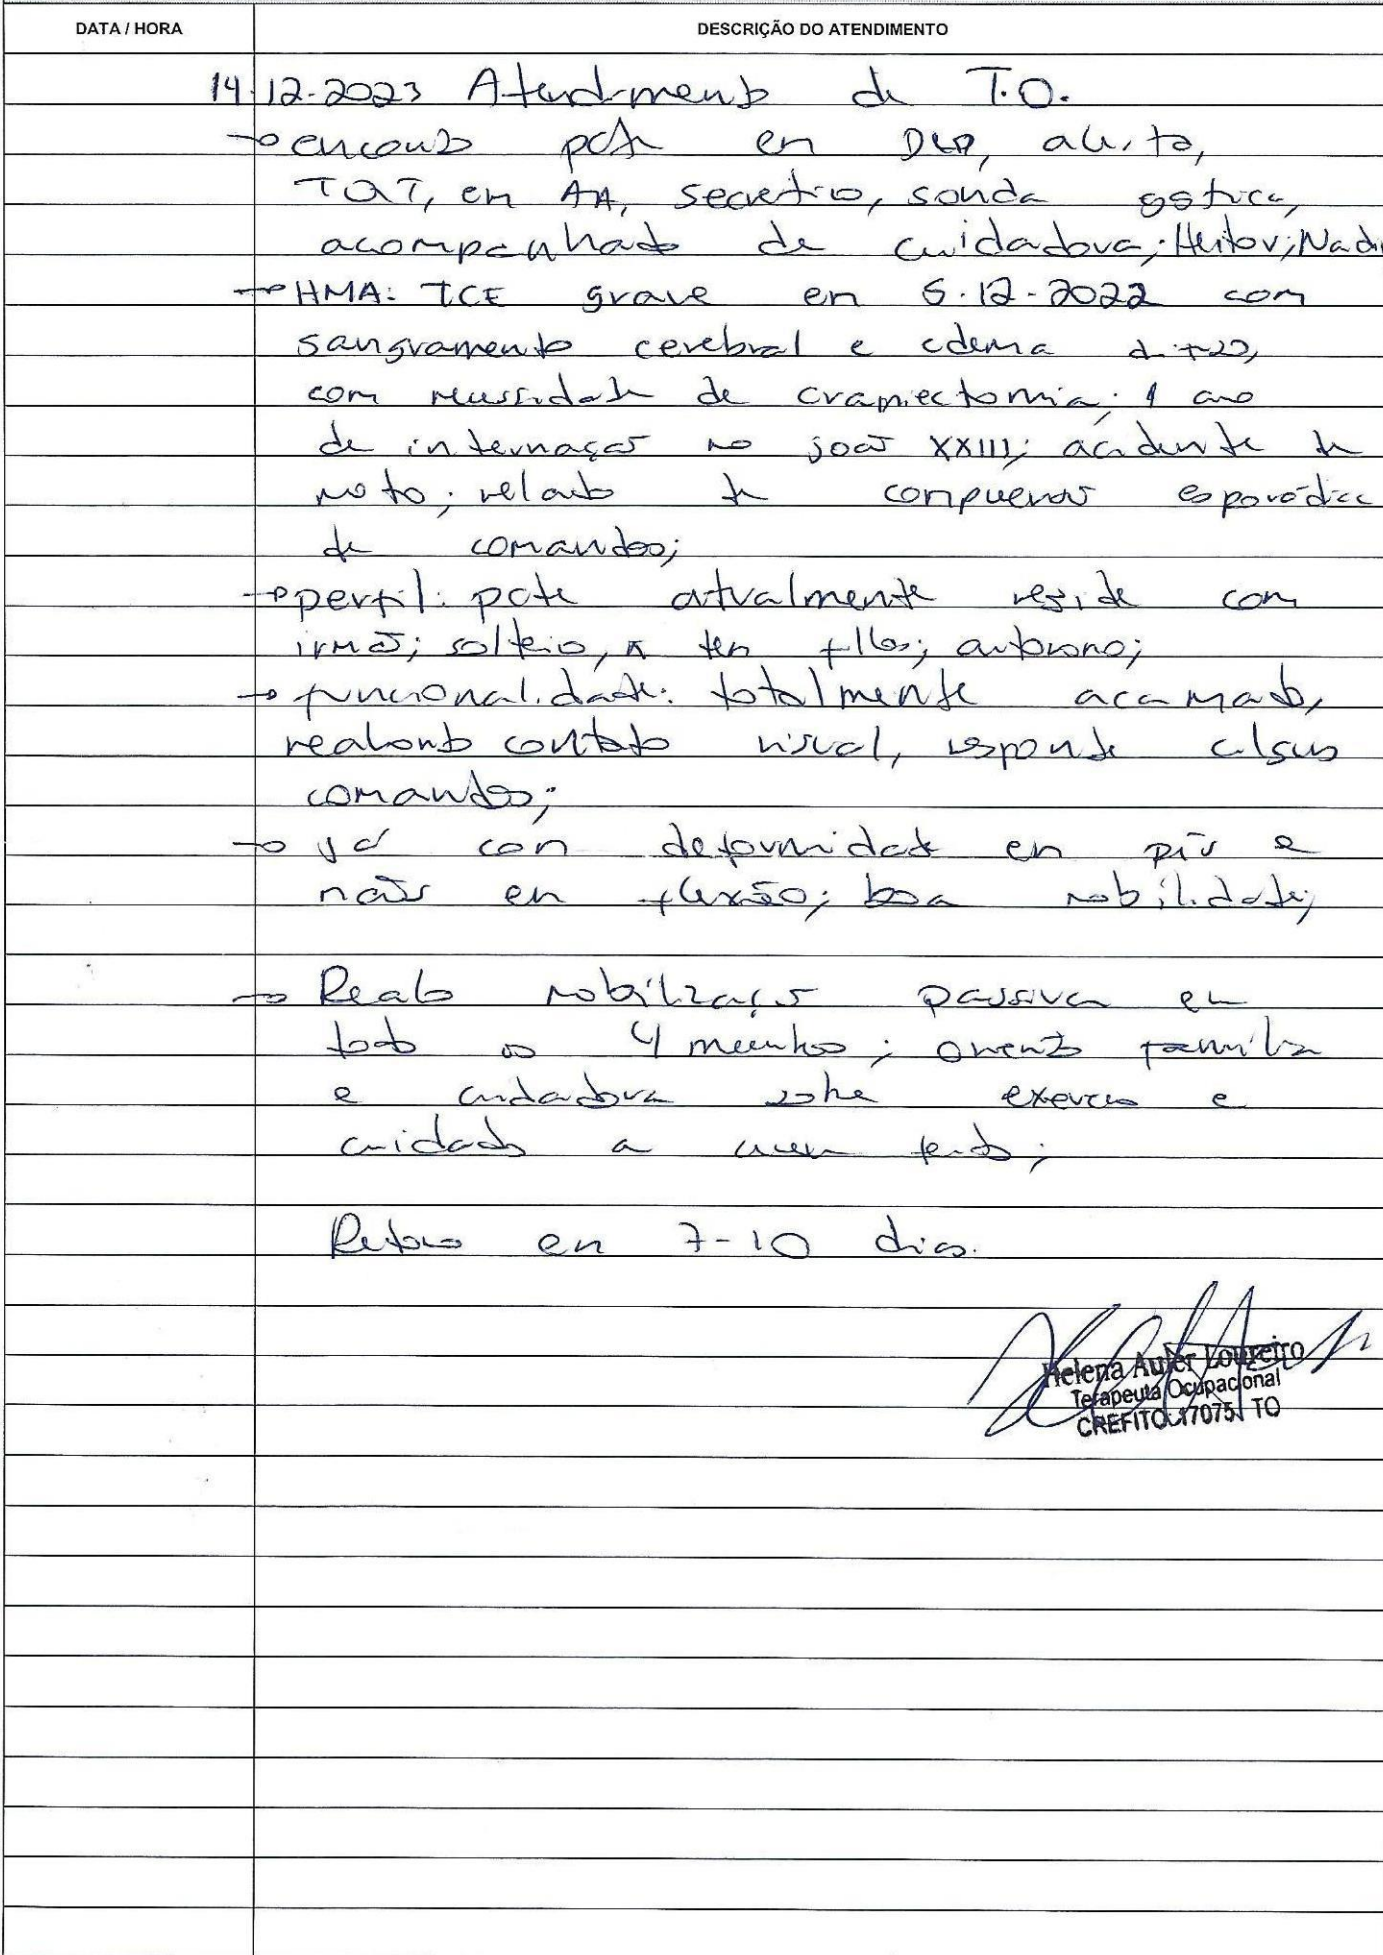 DATA / HORA
DESCRIÇÃO DO ATENDIMENTO
14.12.2023 Atendimento de T.O.
→ encontro pcte em DLD, alerta,
TQT, em AA, secretivo, sonda gástrica,
acompanhado de cuidadora; Heitor; Nadi
→ HMA: TCE grave em 5.12-2022 com
sangramento cerebral e edema difuso,
com necessidade de craniectomia; 1 ano
de internação no João XXIII; acidente de
moto; relato de compreensão esporádica
de comandos;
→ perfil: pcte atualmente reside com
irmã; solteiro, ñ tem filhos; autônomo;
→ funcionalidade: totalmente acamado,
realizando contato visual, responde alguns
comandos;
→ já com deformidade em pés e
mãos em flexão; boa mobilidade;
→ Realizo mobilização passiva em
todos os 4 membros; oriento família
e cuidadora sobre exercícios e
cuidados a serem feitos;
Retorno em 7-10 dias.
Helena Auler Loureiro
Terapeuta Ocupacional
CREFITO 17075 TO